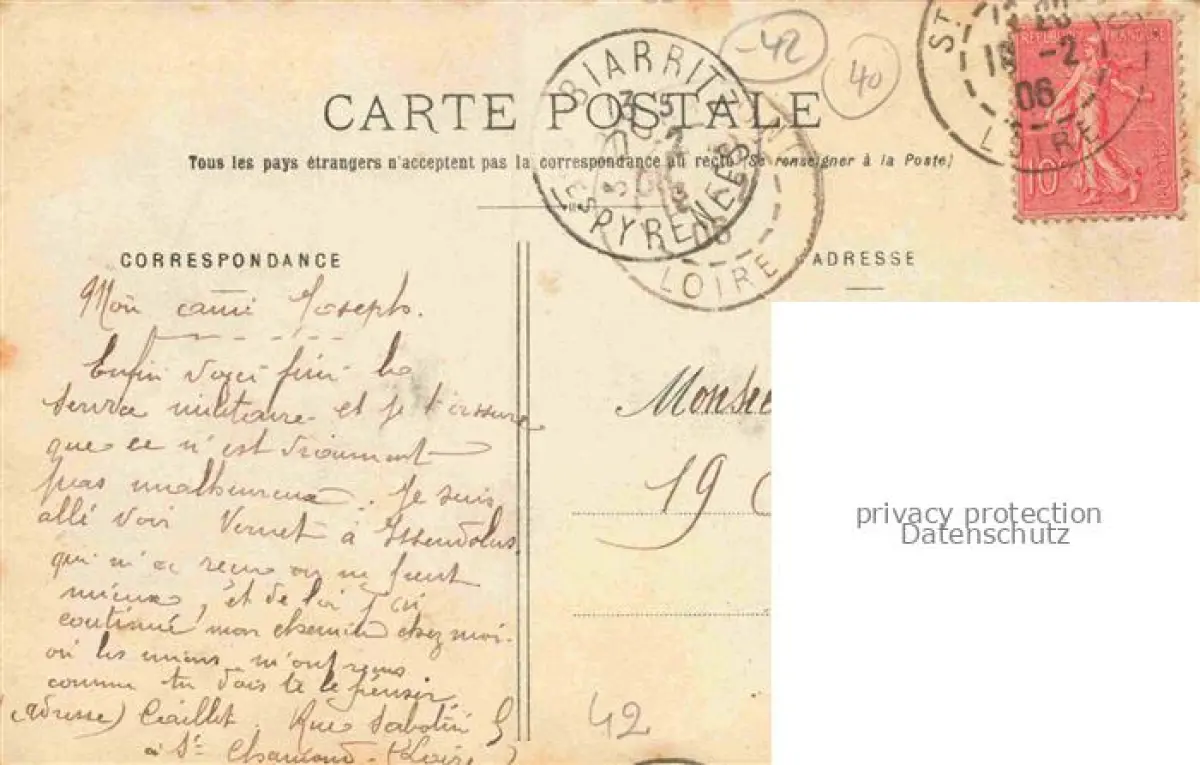 CARTE POSTALE
Tous les pays étrangers n'acceptent pas la correspondance au recto (Se renseigner à la Poste)
BIARRITZ
13 5
3
06
BSES PYRENEES
LOIRE
-42
40
ST
18 -2
06
LOIRE
REPUBLIQUE FRANÇAISE
10
CORRESPONDANCE
Mon ami Joseph.
Enfin voici fini le
service militaire et je t'assure
que ce n'est vraiment
pas malheureux. Je suis
allé voir Vernet à Issendolus
qui m'a reçu on ne peut
mieux, et de loi j'ai
continué mon chemin chez moi.
où les miens m'ont reçu
comme tu dois te le pensir
(Adresse) Caillet. Rue Sabotin 5
à St Chamond - (Loire)
ADRESSE
Monsie
19
42
privacy protection
Datenschutz